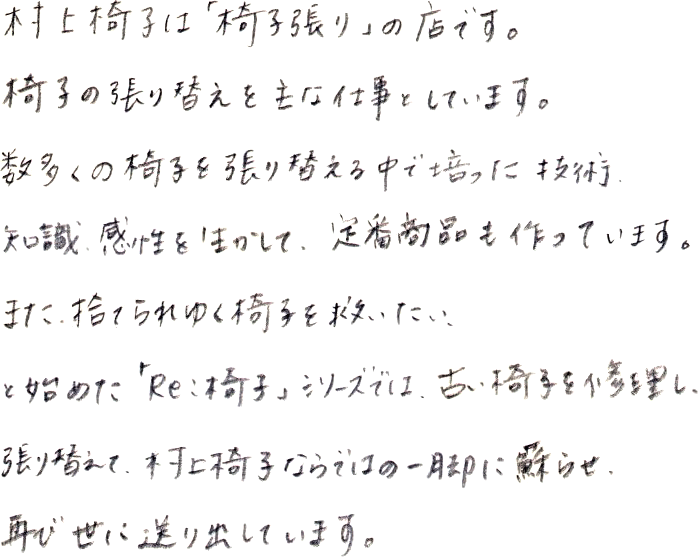 村上椅子は「椅子張り」の店です。
椅子の張り替えを主な仕事としています。
数多くの椅子を張り替える中で培った技術、
知識、感性を生かして、定番商品も作っています。
また、捨てられゆく椅子を救いたい、
と始めた「Re:椅子」シリーズでは、古い椅子を修理し、
張り替えて、村上椅子ならではの一脚に蘇らせ、
再び世に送り出しています。